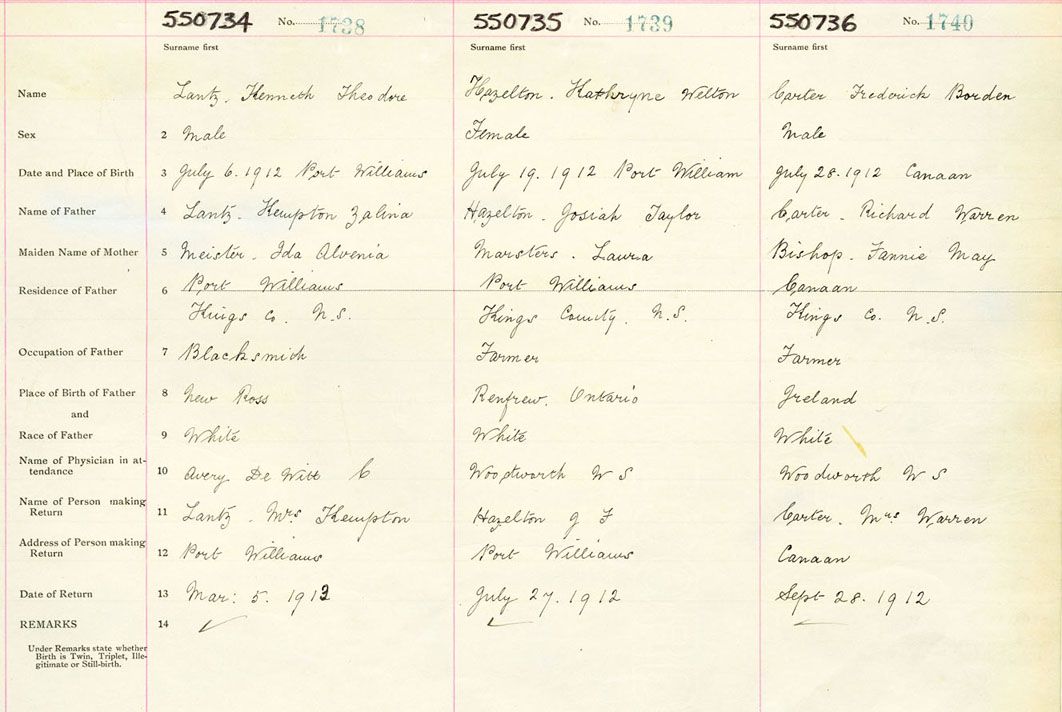 550734 No. 1738 550735 No. 1739 550736 No. 1740
Surname first Surname first Surname first
Name Lantz. Kenneth Theodore Hazelton. Kathryne Welton Carter Frederick Borden
Sex 2 Male Female Male
Date and Place of Birth 3 July 6. 1912 Port Williams July 19. 1912 Port William July 28. 1912 Canaan
Name of Father 4 Lantz. Kempton Zalina Hazelton. Josiah Taylor Carter. Richard Warren
Maiden Name of Mother 5 Meister. Ida Alvenia Marsters. Laura Bishop. Fannie May
Residence of Father 6 Port Williams Port Williams Canaan
Kings Co. N.S. Kings County. N.S. Kings Co. N.S.
Occupation of Father 7 Blacksmith Farmer Farmer
Place of Birth of Father 8 New Ross Renfrew. Ontario Ireland
and
Race of Father 9 White White White
Name of Physician in at-
tendance 10 Avery De Witt C Woodworth W S Woodworth W S
Name of Person making
Return 11 Lantz. Mrs Kempton Hazelton J F Carter. Mrs Warren
Address of Person making
Return 12 Port Williams Port Williams Canaan
Date of Return 13 Mar: 5. 1913 July 27. 1912 Sept 28. 1912
REMARKS 14
Under Remarks state whether
Birth is Twin, Triplet, Ille-
gitimate or Still-birth.